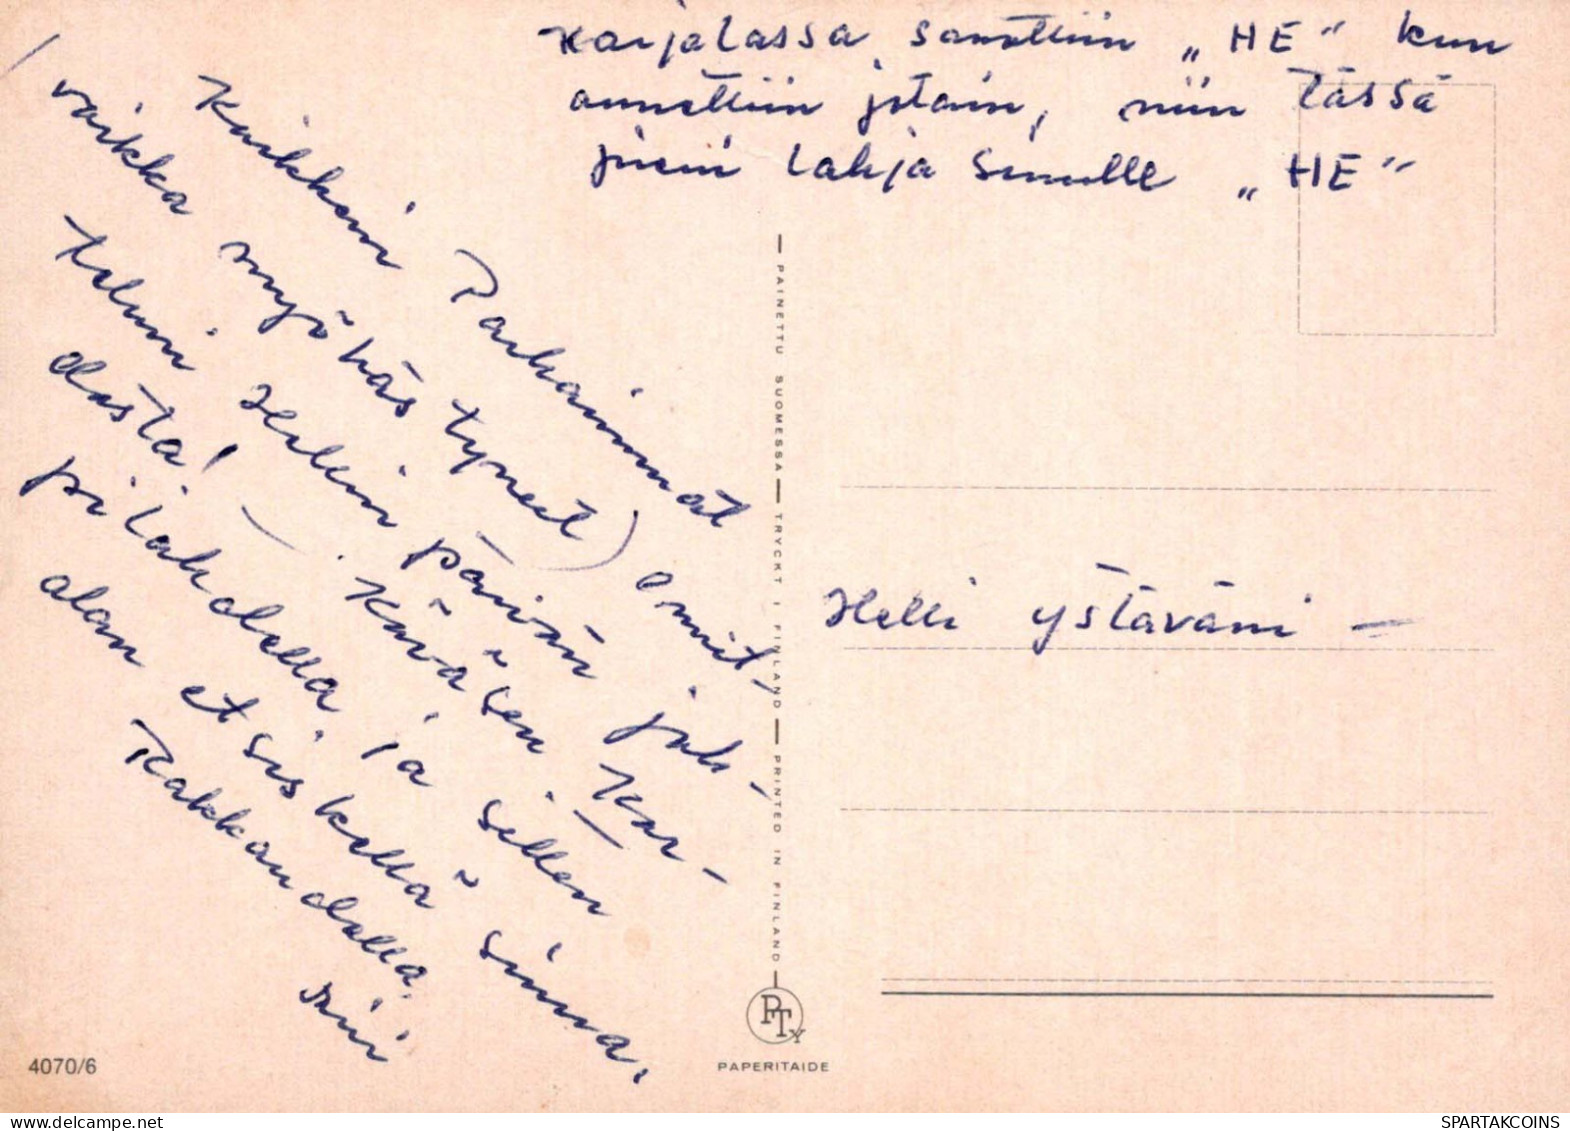 Karjalassa sanottiin „HE" kun
annettiin jotain, niin tässä
pieni lahja Sinulle „HE"
Kaikkein Parhaimmat
(vaikka myöhästyneet) onnit-
teluni Helin päivän juh-
dasta! - Käväsen Kar-
pilahdella ja sillen
alan etsiskellä sinua.
Rakkaudella.
Helli ystäväni -
PAINETTU SUOMESSA — TRYCKT I FINLAND — PRINTED IN FINLAND
PTy
PAPERITAIDE
4070/6
SPARTAKCOINS